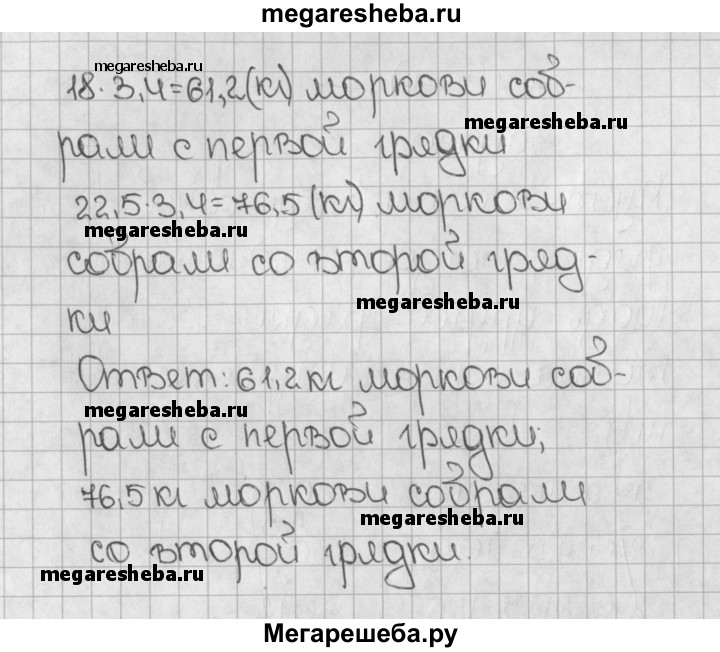 megaresheba.ru
megaresheba.ru
18·3,4=61,2(кг) моркови соб-
megaresheba.ru
рали с первой грядки
22,5·3,4=76,5(кг) моркови
megaresheba.ru
собрали со второй гряд-
megaresheba.ru
ки
Ответ: 61,2 кг моркови соб-
megaresheba.ru
рали с первой грядки;
76,5 кг моркови собрали
megaresheba.ru
со второй грядки.
megaresheba.ru
Мегарешеба.ру